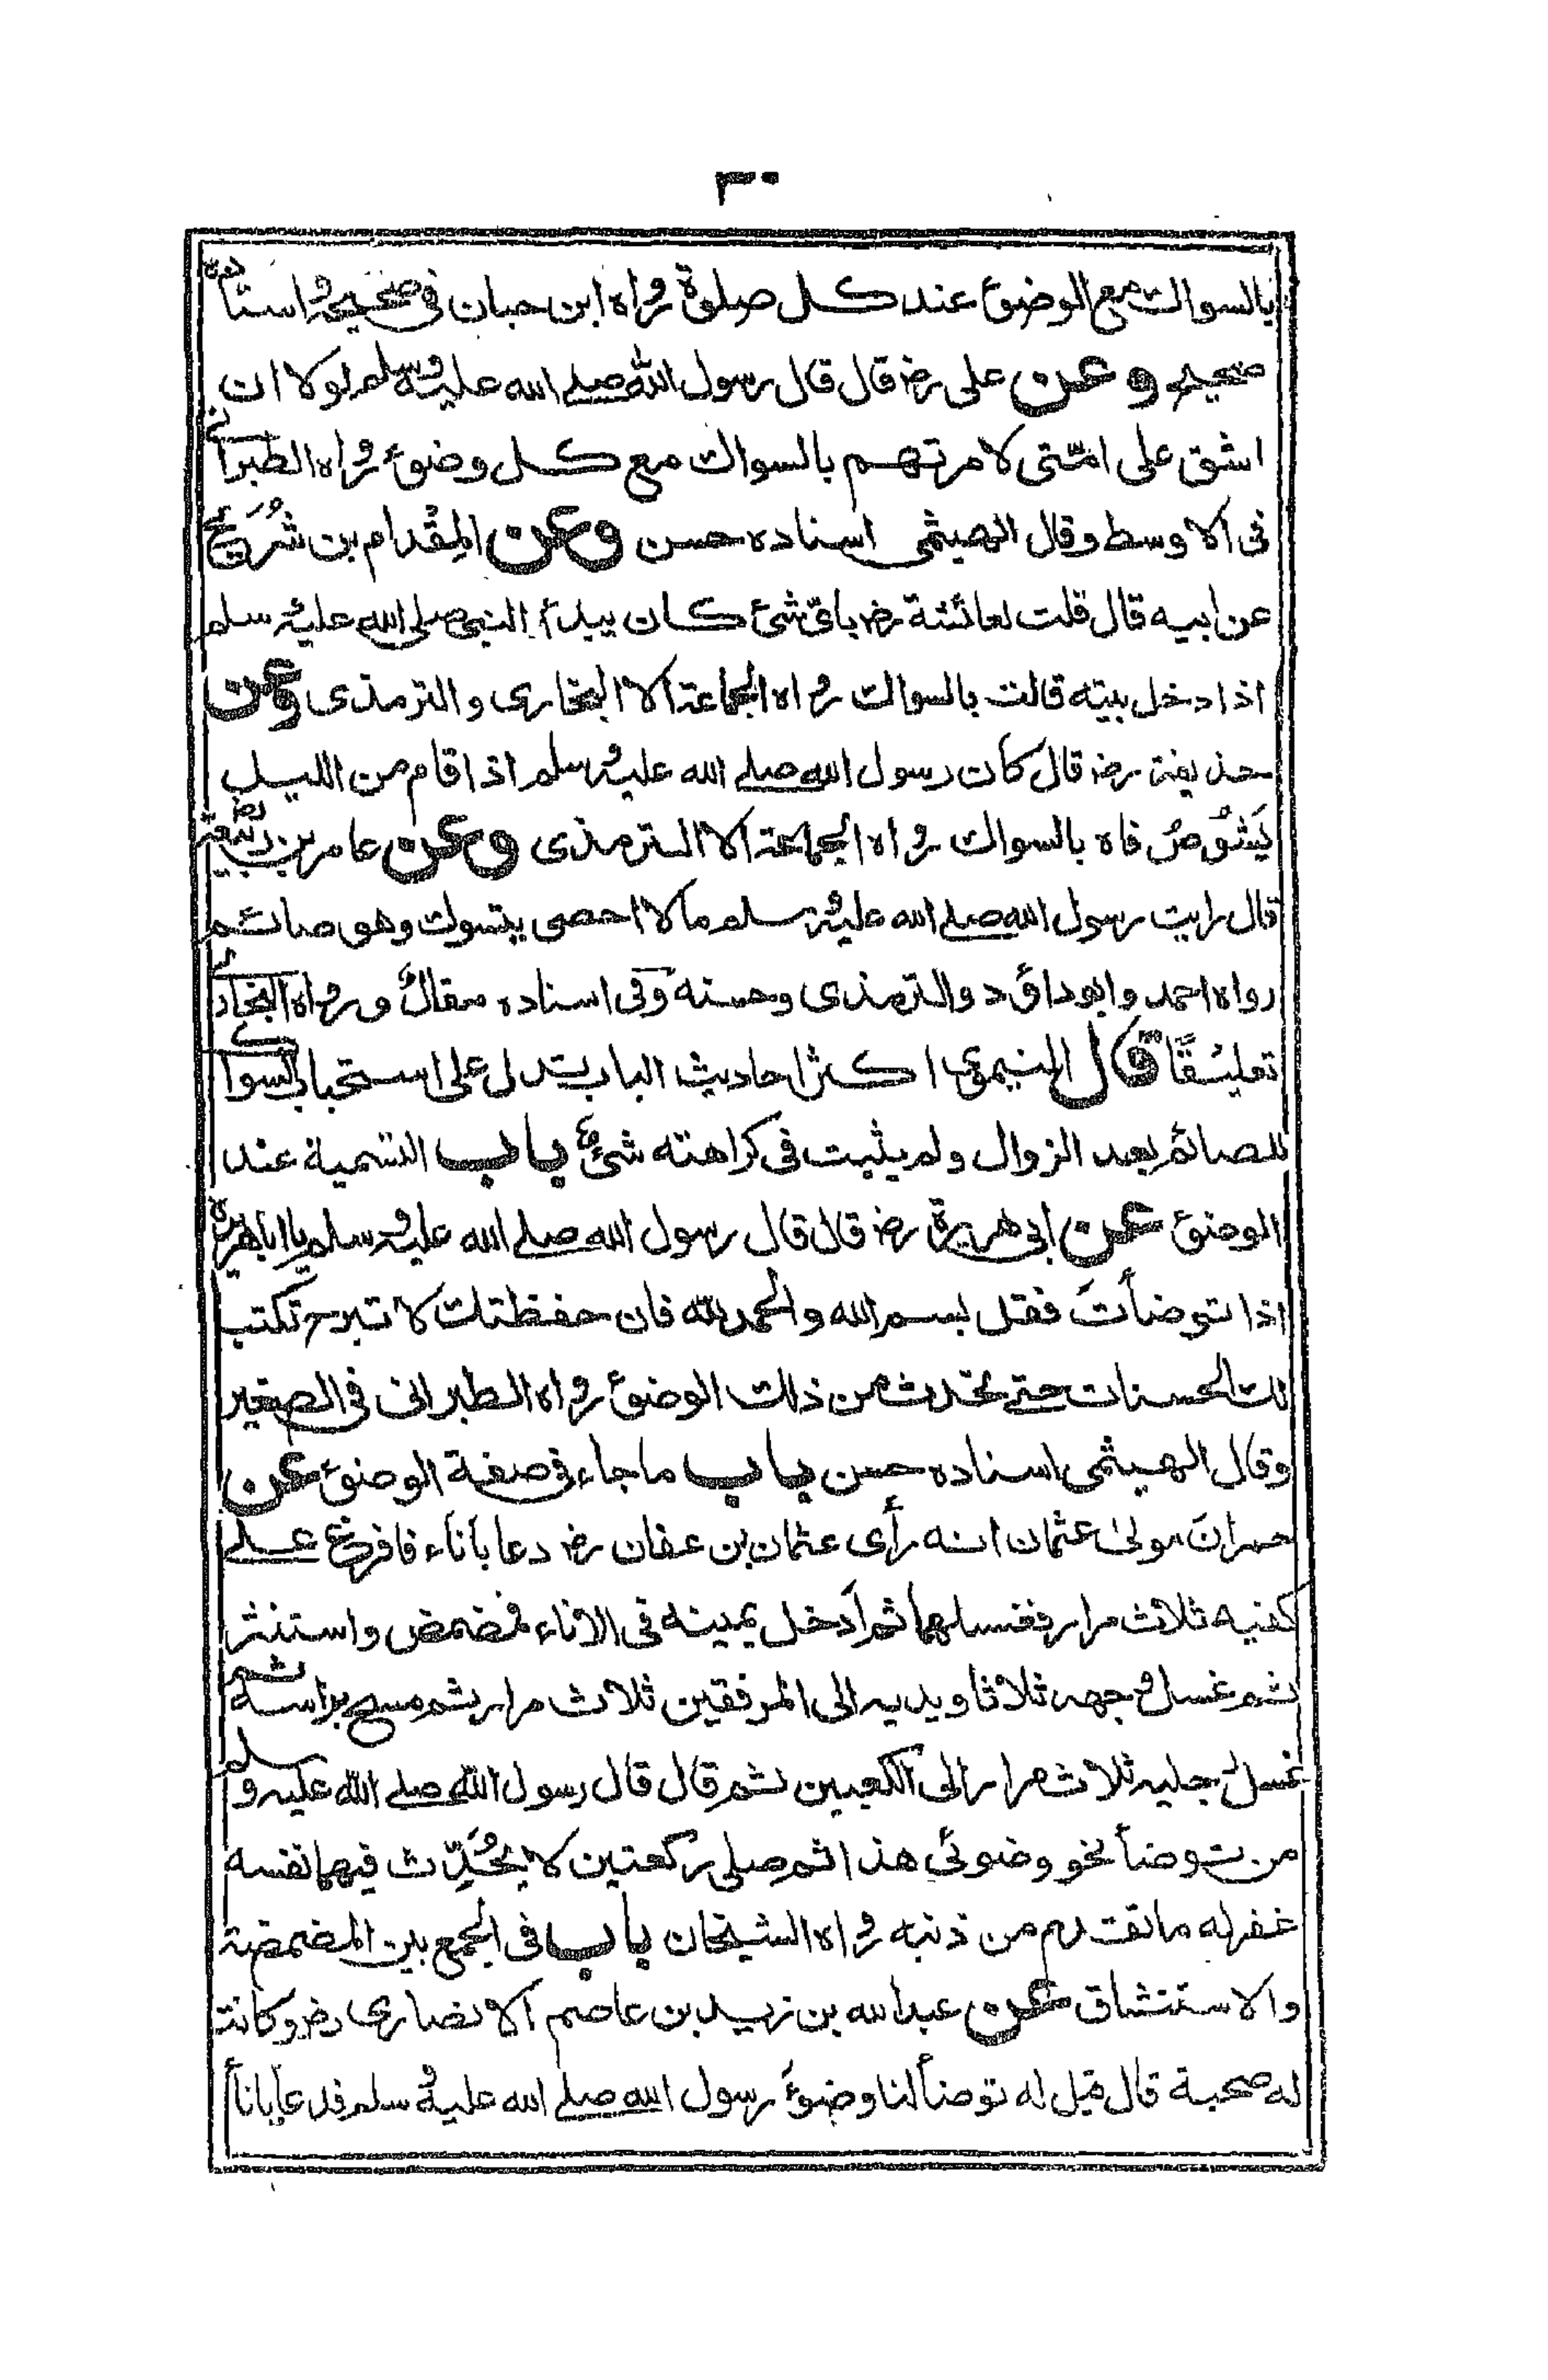 ٣٠
بالسواك مع الوضوء عند كل صلوة رواه ابن حبان فى صحيحه واسناده
صحيح وعن على رض قال قال رسول الله صلى الله عليه وسلم لولا ان
اشق على امّتى لامرتهم بالسواك مع كل وضوء رواه الطبرانى
فى الاوسط وقال الهيثمى اسناده حسن وعن المِقْدام بن شُرَيح
عن ابيه قال قلت لعائشة رض باىّ شئ كان يبدأ النبى صلى الله عليه وسلم
اذا دخل بيته قالت بالسواك رواه الجماعة الا البخارى والترمذى وعن
حذيفة رض قال كان رسول الله صلى الله عليه وسلم اذا قام من الليل
يَشُوصُ فاه بالسواك رواه الجماعة الا الترمذى وعن عامر بن ربيعة رض
قال رايت رسول الله صلى الله عليه وسلم مالا احصى يتسوك وهو صائم
رواه احمد وابو داؤد والترمذى وحسنه وفى اسناده مقالٌ ورواه البخارى
تعليقًا قال النيموى اكثر احاديث الباب تدل على استحباب السواك
للصائم بعد الزوال ولم يثبت فى كراهته شئٌ باب التسمية عند
الوضوء عن ابى هريرة رض قال قال رسول الله صلى الله عليه وسلم يا ابا هريرة
اذا توضأتَ فقل بسم الله والحمد لله فان حفظتك لا تبرح تكتب
لك الحسنات حتى تحدث من ذلك الوضوء رواه الطبرانى فى الصغير
وقال الهيثمى اسناده حسن باب ما جاء فى صفة الوضوء عن
حمرانَ مولىٰ عثمان انه رأى عثمان بن عفان رض دعا باناء فافرغ على
كفيه ثلاث مرار فغسلهما ثم اَدخل يمينه فى الاناء فمضمض واستنثر
ثم غسل وجهه ثلاثا ويديه الى المرفقين ثلاث مرار ثم مسح براسه ثم
غسل رجليه ثلاث مرار الى الكعبين ثم قال قال رسول الله صلى الله عليه وسلم
من توضأ نحو وضوئى هذا ثم صلى ركعتين لا يُحَدِّث فيهما نفسه
غفر له ما تقدم من ذنبه رواه الشيخان باب فى الجمع بين المضمضة
والاستنشاق عن عبد الله بن زيد بن عاصم الانصارى رض وكانت
له صحبة قال قيل له توضأ لنا وضوءَ رسول الله صلى الله عليه وسلم فدعا باناء